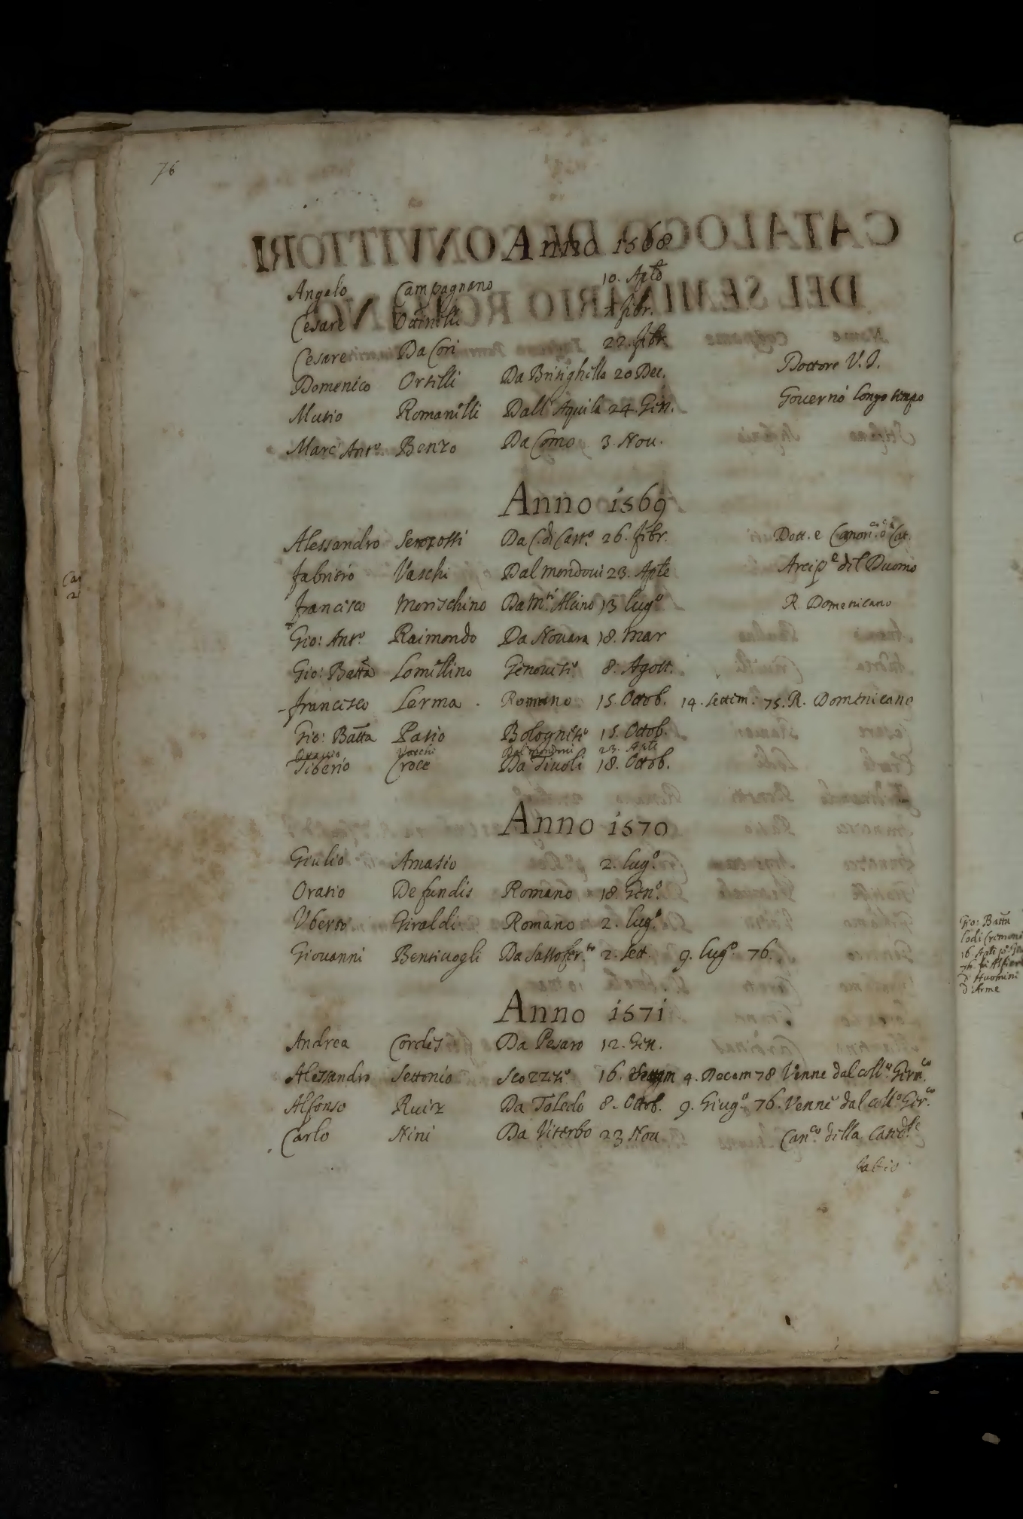 76
Anno 1568
Angelo Campagnano 10. Aple
Cesare febr.
Cesare Da Cori 22. febr.
Domenico Orselli Da Brisighella 20 Dec. Dottore V. I.
Mutio Romanelli Dall' Aquila 24. Gen. Governò longo tempo
Marc' Ant.o Benzo Da Como 3 Nou.
Anno 1569
Alessandro Da C. di Cast.o 26. febr. Dott. e Canon.co
fabritio Vaschi Dal mondoui 23. Aple Arcip.e del Duomo
francesco Da M.te Alcino 13 lug.o R. Domenicano
Gio: Ant.o Raimondo Da Nouara 18. mar
Gio: Batta Lomellino Genouese 8. Agost.
francesco Lerma Romano 15. Ottob. 14. Settem: 75. R. Domenicano
Gio: Batta Pasio Bolognese 15. Ottob.
Oratio Vaschi Dal mondoui 23. Aple
Tiberio Croce Da Tiuoli 18. Ottob.
Anno 1570
Giulio Amasio 2. lug.o
Oratio De fundis Romano 18. Gen.o
Vberto Giraldi Romano 2. lug.o
Giovanni Bentiuogli Da Sassofer.to 2. Sett. 9. lug.o 76.
Anno 1571
Andrea Cordes Da Pesaro 12. Gen.
Alessandro Settonio Scozz.e 16. 4. Decem 78 Venne dal coll.o Ger.co
Alfonso Ruiz Da Toledo 8. Ottob. 9. Giug.o 76. Venne dal coll.o Ger.co
Carlo Nini Da Viterbo 23 Nou. Can.co della Catted.le
fabio
Gio: Batta